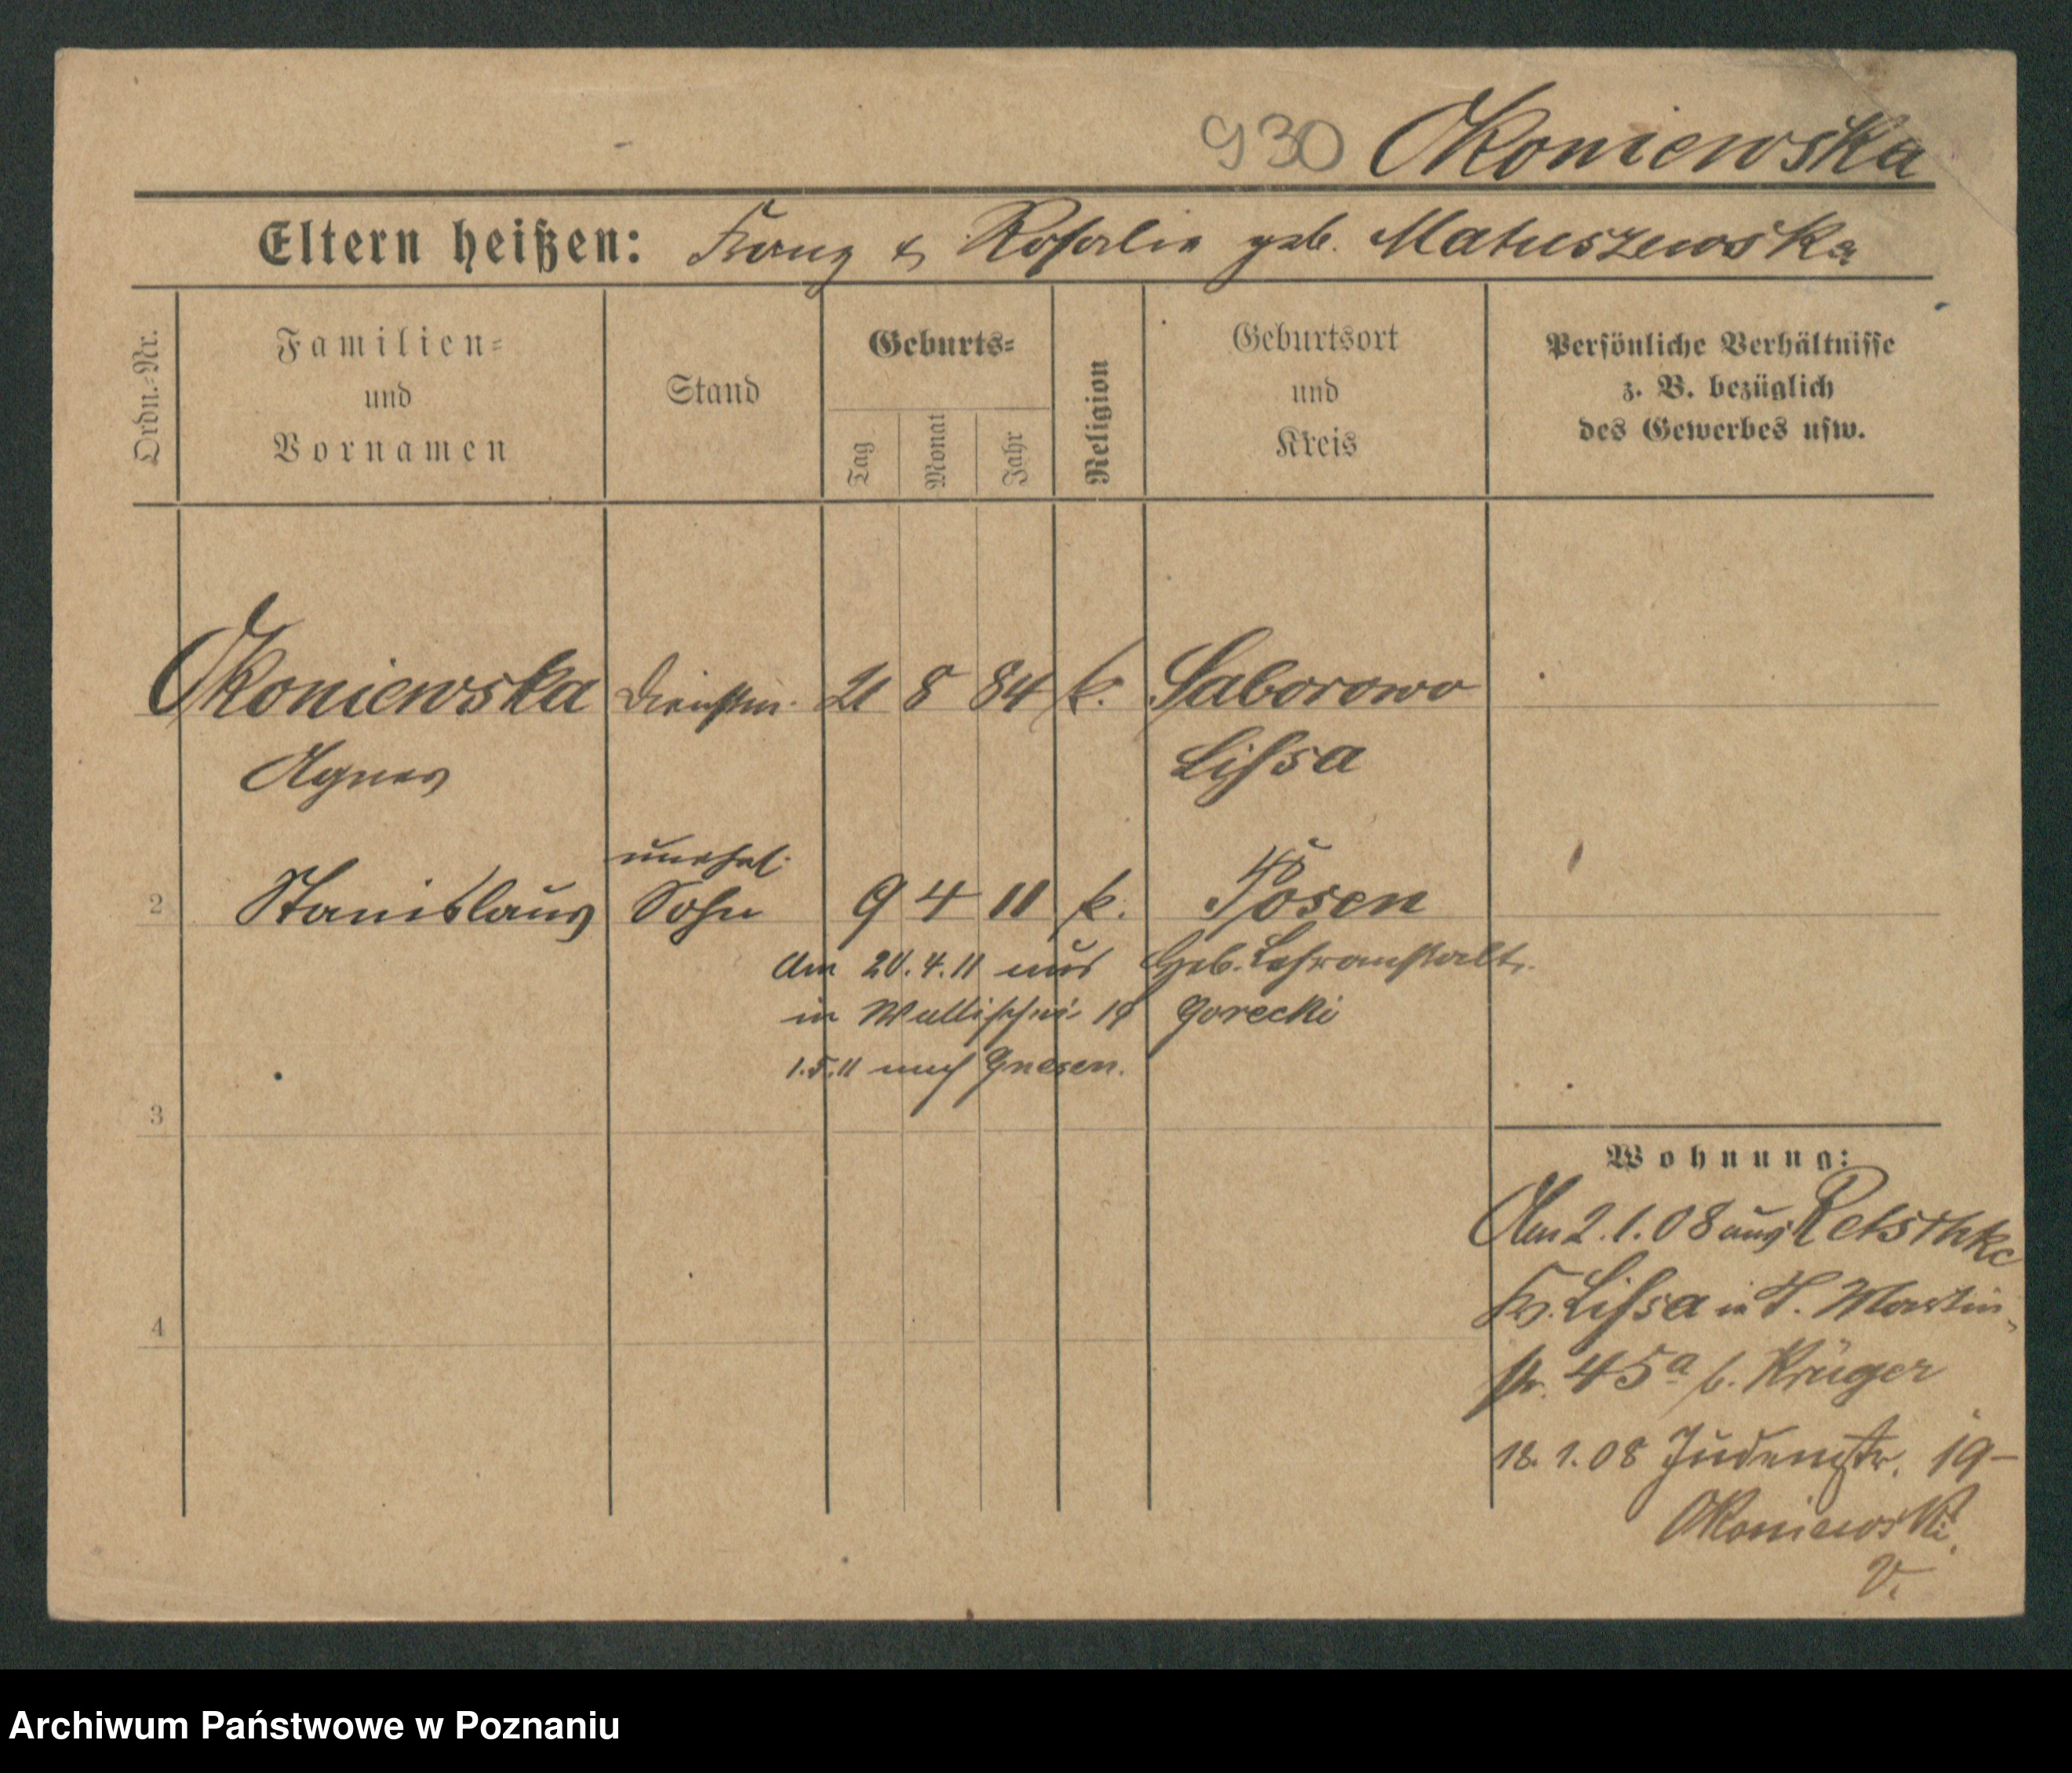 930 Okoniewska
Eltern heißen: Franz & Rosalie geb. Matuszewska
Ordn.-Nr.
Familien-
und
Vornamen
Stand
Geburts-
Tag
Monat
Jahr
Religion
Geburtsort
und
Kreis
Persönliche Verhältnisse
z. B. bezüglich
des Gewerbes usw.
Okoniewska Dienstm. 21 8 84 k. Saborowo
Agnes Lissa
unehel.
2 Stanislaus Sohn 9 4 11 k. Posen
Am 20.4.11 aus Heb. Lehranstalt
in Wallischei 19 Gorecki
1.5.11 nach Gnesen.
3
4
Wohnung:
Am 2.1.08 aus Retschke
Kr. Lissa in S. Martin-
str. 45a b. Krüger
18.1.08 Judenstr. 19-
Okoniewski.
V.
Archiwum Państwowe w Poznaniu